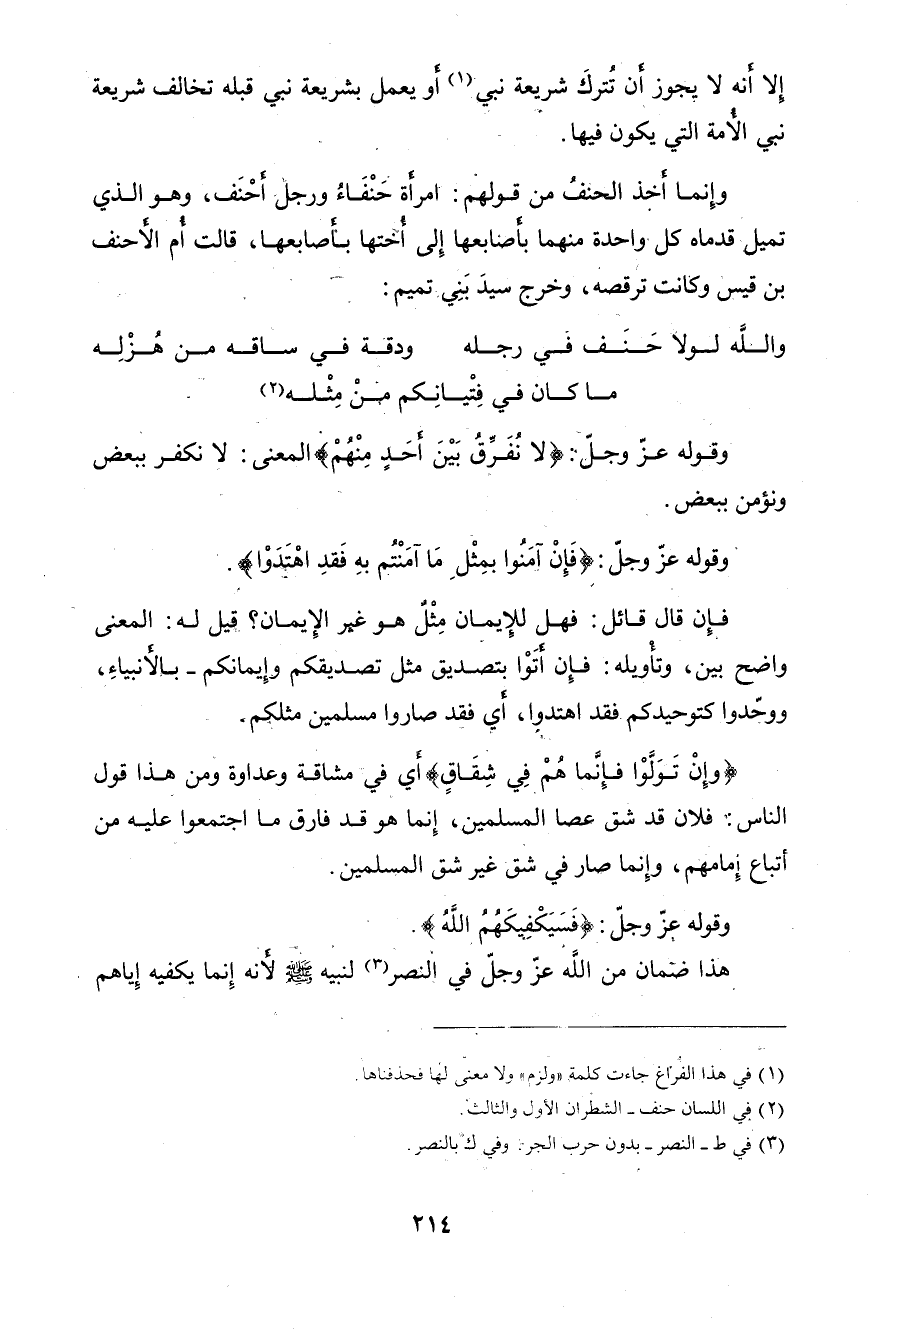 إلا أَنه لا يجوز أَن تُتركَ شريعة نبي(١) أَو يعمل بشريعة نبي قبله تخالف شريعة
نبي الأُمة التي يكون فيها.
وإنما أخذ الحنفُ من قولهم: امرأَة حَنْفَاءُ ورجل أَحْنَف، وهو الذي
تميل قدماه كل واحدة منهما بأَصابعها إلى أُختها بأَصابعها، قالت أُم الأَحنف
بن قيس وكانت ترقصه، وخرج سيدَ بَنِي تميم:
واللَّه لولا حَنَف في رجله ودقة في ساقه من هُزْلِه
ما كان في فِتْيانِكم مَنْ مِثْله(٢)
وقوله عزّ وجلّ: ﴿لا نُفَرِّقُ بَيْنَ أَحَدٍ مِنْهُمْ﴾المعنى: لا نكفر ببعض
ونؤمن ببعض.
وقوله عزّ وجلّ: ﴿فَإِنْ آمَنُوا بِمِثْلِ مَا آمَنْتُم بِهِ فَقدِ اهْتَدَوْا﴾.
فإن قال قائل: فهل للإيمان مِثْلٌ هو غير الإيمان؟ قيل له: المعنى
واضح بين، وتأْويله: فإن أَتَوْا بتصديق مثل تصديقكم وإيمانكم ـ بالأَنبياءِ،
ووحّدوا كتوحيدكم فقد اهتدوا، أَي فقد صاروا مسلمين مثلكم.
﴿وإِنْ تَوَلَّوْا فإنَّما هُمْ فِي شِقَاقٍ﴾أَي في مشاقة وعداوة ومن هذا قول
الناس: فلان قد شق عصا المسلمين، إنما هو قد فارق ما اجتمعوا عليه من
أتباع إمامهم، وإنما صار في شق غير شق المسلمين.
وقوله عزّ وجلّ: ﴿فَسَيَكْفِيكَهُمُ اللَّهُ﴾.
هذا ضمان من اللَّه عزّ وجلّ في النصر(٣) لنبيه ﷺ لأَنه إنما يكفيه إياهم
(١) في هذا الفراغ جاءت كلمة «ولزم» ولا معنى لها فحذفناها.
(٢) في اللسان حنف ـ الشطران الأول والثالث.
(٣) في ط ـ النصر ـ بدون حرب الجر. وفي ك بالنصر.
٢١٤